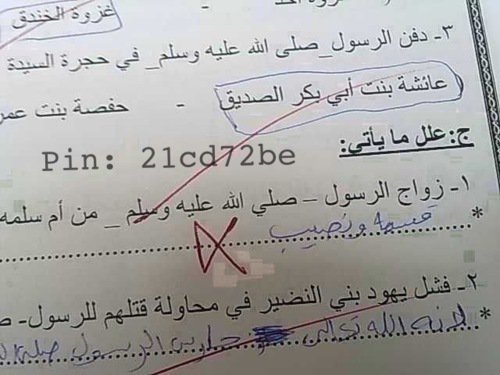 غزوة الخندق -
٣- دفن الرسول_ صلى الله عليه وسلم_ في حجرة السيدة
عائشة بنت أبي بكر الصديق - حفصة بنت عمر
ج: علل ما يأتي:
Pin: 21cd72be
١- زواج الرسول – صلي الله عليه وسلم _ من أم سلمه
* قسمة ونصيب
٢- فشل يهود بني النضير في محاولة قتلهم للرسول- ص
* لانه الله تعالى حارس الرسول صلى